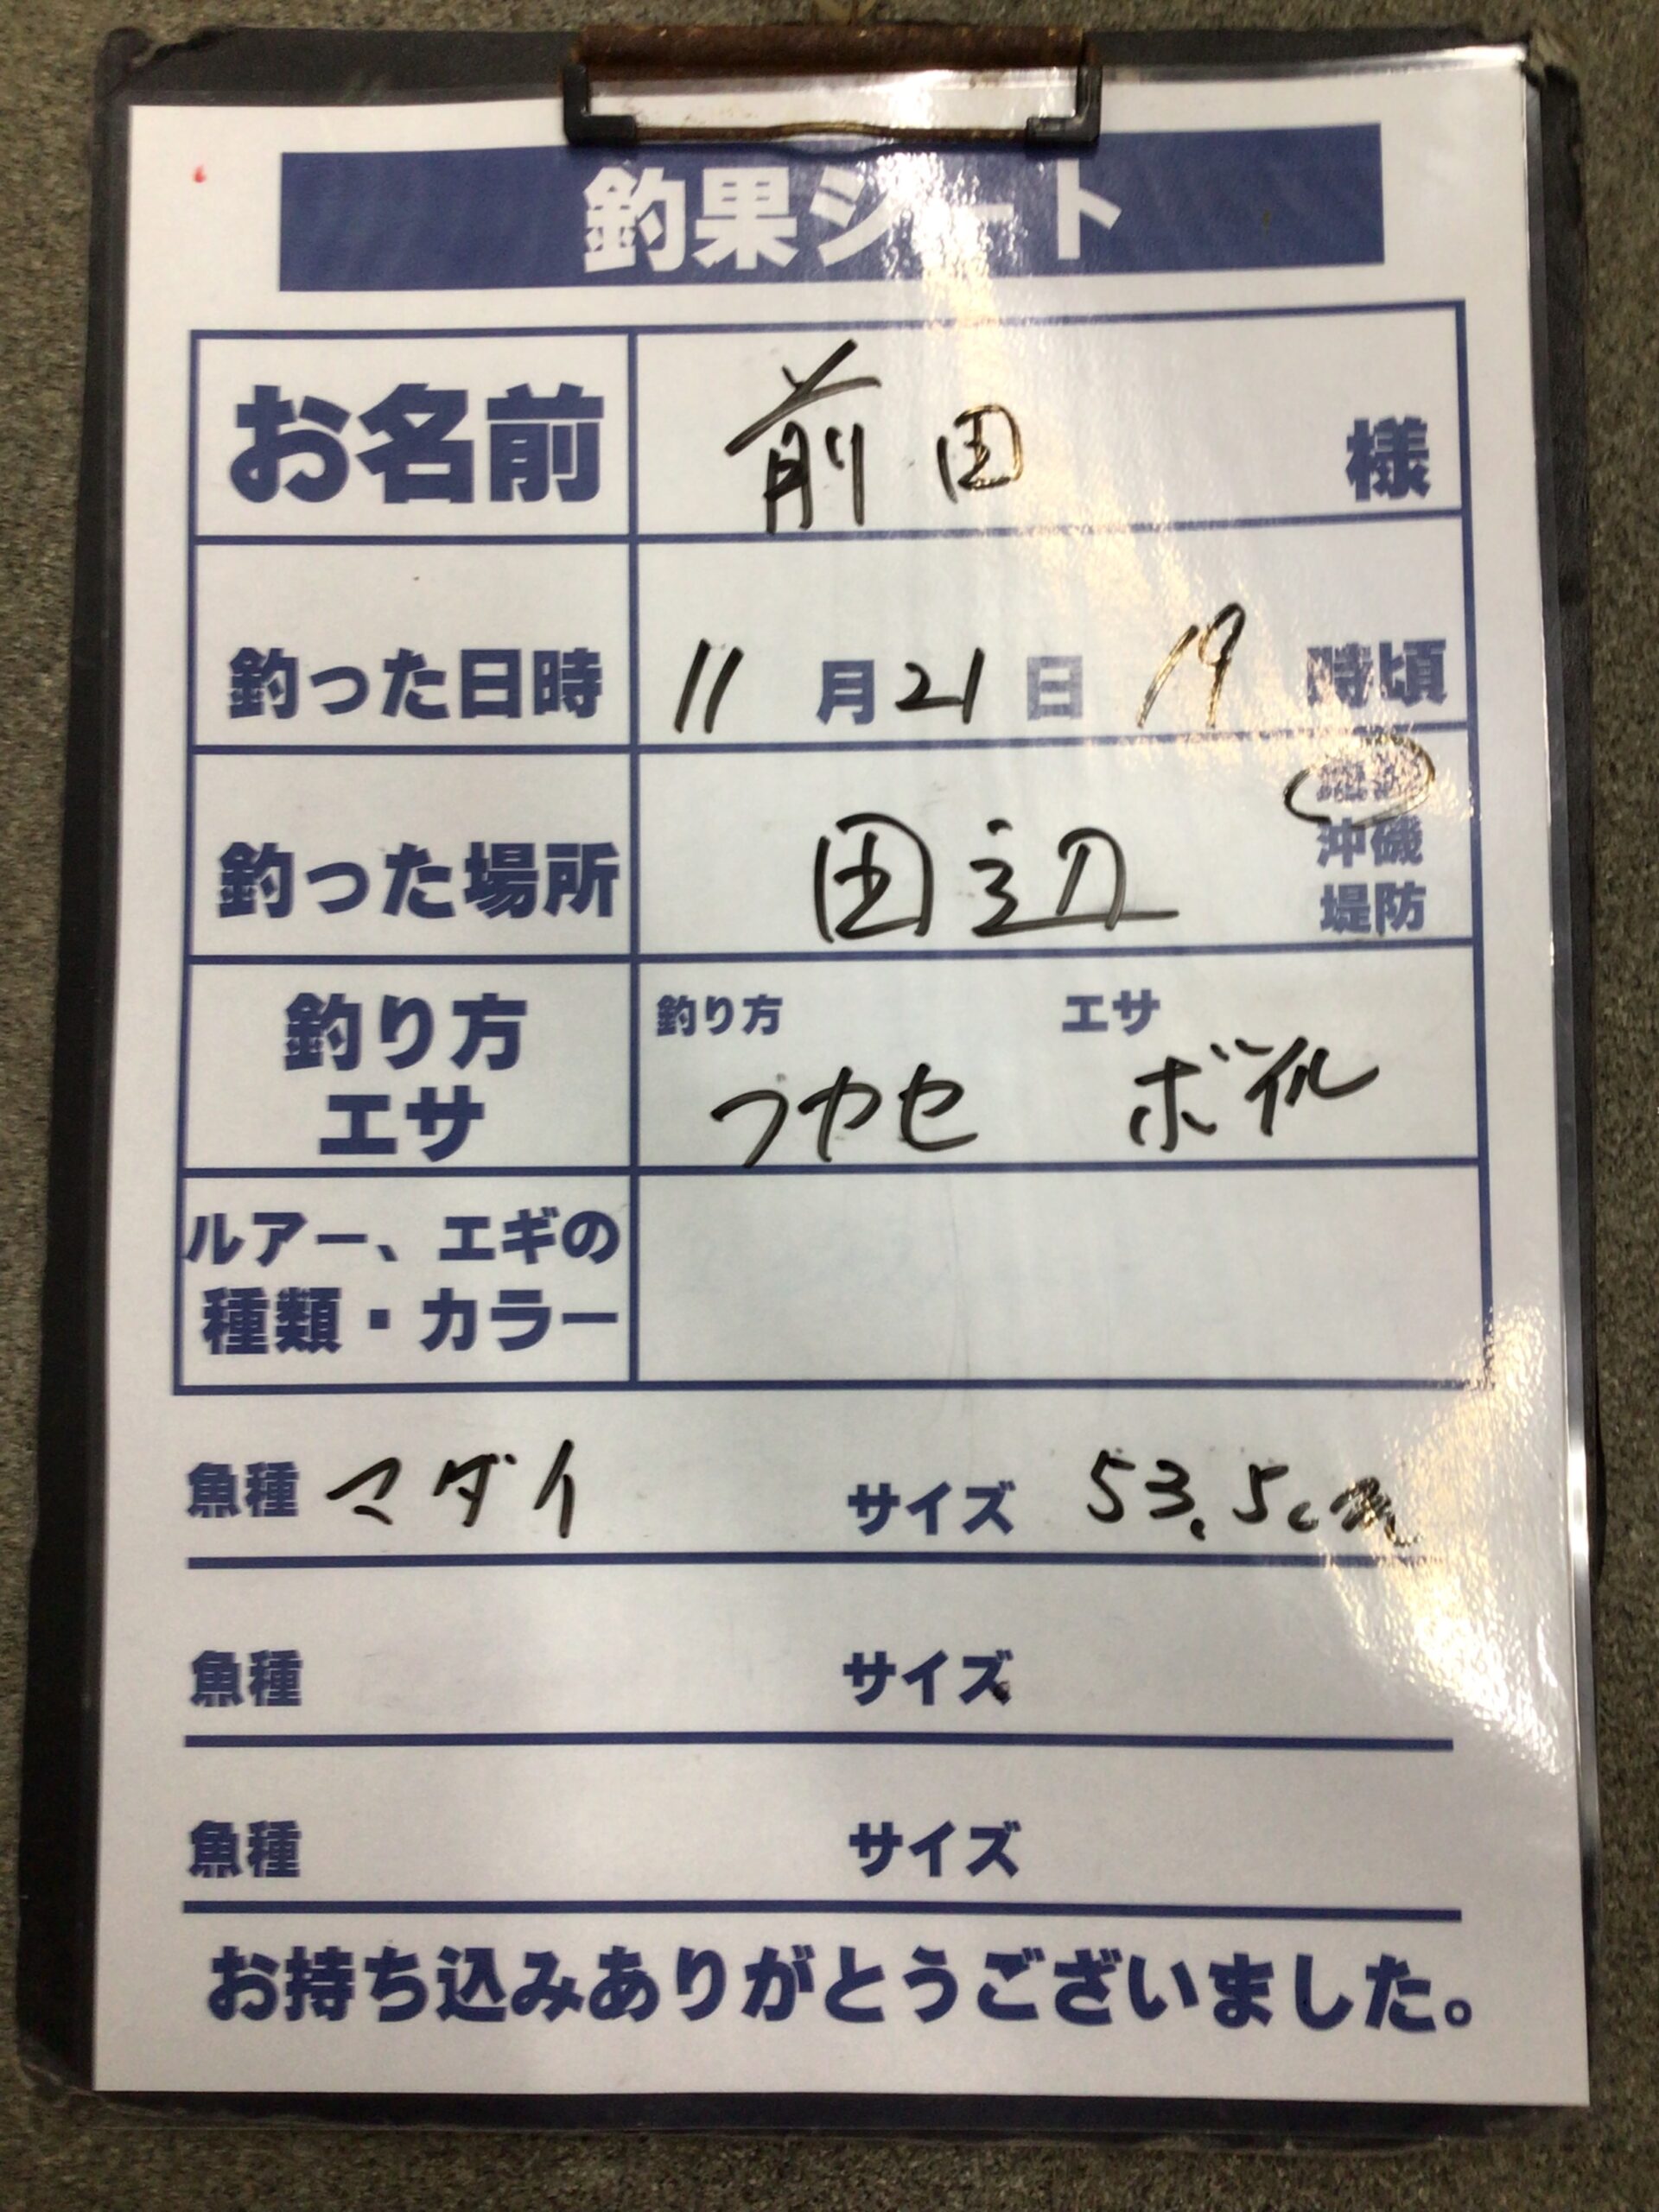 釣果シート
お名前 前田 様
釣った日時 11月21日 19時頃
釣った場所 田辺
沖磯
堤防
釣り方 エサ
釣り方 フカセ エサ ボイル
ルアー、エギの
種類・カラー
魚種 マダイ サイズ 53.5cm
魚種 サイズ
魚種 サイズ
お持ち込みありがとうございました。